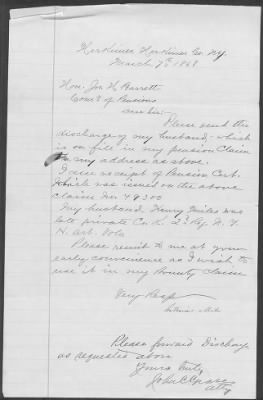 Herkimer Herkimer Co. N.Y.
March 7th 1868.
Hon. Jos. H. Barrett
Com'r of Pensions
Dear Sir:
Please send the
discharge of my husband, which
is on file in my pension claim
to my address as above.
I also receipt of Pension Cert.
which was issued on the above
claim No 49300
My husband, Henry Miles was
late private Co. L. 2d Reg. N. Y.
H. Art. Vols
Please remit to me at your
early convenience as I wish to
use it in my Bounty claim
Very Resp
Please forward Discharge
as requested above
Yours truly,
Atty